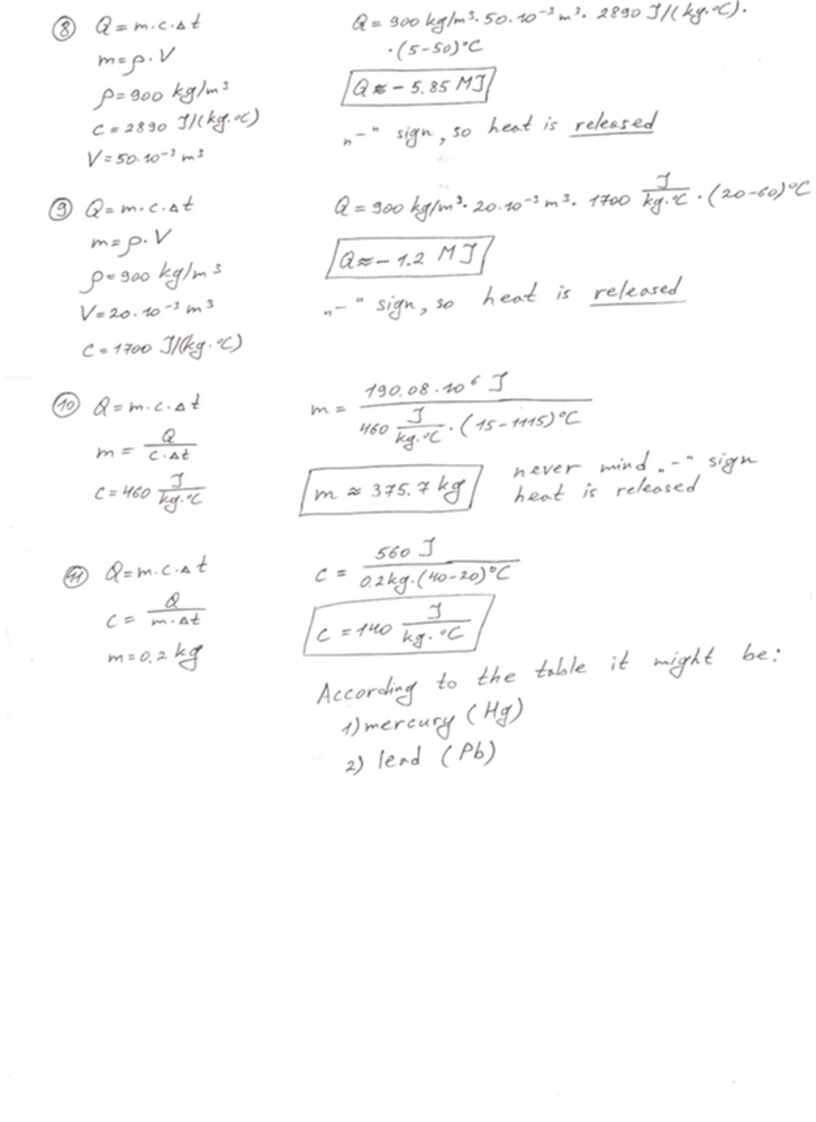 ⑧ Q = m·c·Δt
m = ρ·V
ρ = 900 kg/m³
c = 2890 J/(kg·°C)
V = 50·10⁻³ m³
Q = 900 kg/m³ · 50·10⁻³ m³ · 2890 J/(kg·°C)·
·(5-50)°C
Q ≈ - 5.85 MJ
„-“ sign, so heat is released
⑨ Q = m·c·Δt
m = ρ·V
ρ = 900 kg/m³
V = 20·10⁻³ m³
c = 1700 J/(kg·°C)
Q = 900 kg/m³ · 20·10⁻³ m³ · 1700 J/kg·°C · (20-60)°C
Q ≈ - 1.2 MJ
„-“ sign, so heat is released
⑩ Q = m·c·Δt
m = Q/c·Δt
c = 460 J/kg·°C
m = 190.08·10⁶ J / 460 J/kg·°C · (15-1115)°C
m ≈ 375.7 kg
never mind „-“ sign
heat is released
⑪ Q = m·c·Δt
c = Q/m·Δt
m = 0.2 kg
c = 560 J / 0.2kg·(40-20)°C
c = 140 J/kg·°C
According to the table it might be:
1) mercury (Hg)
2) lead (Pb)